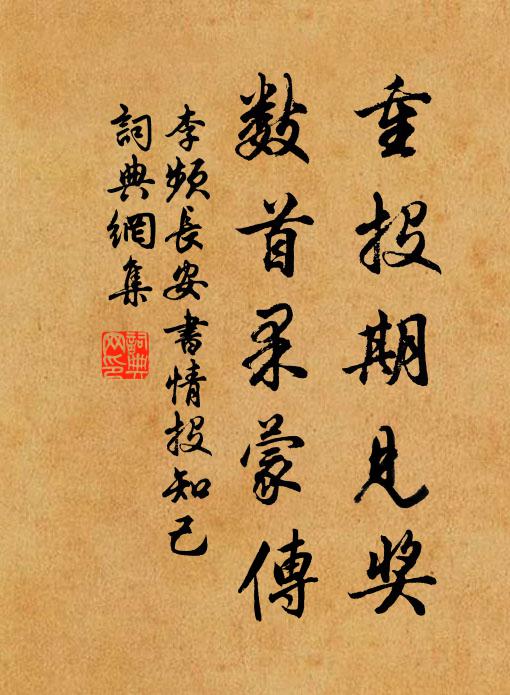 重投期見獎
數首果蒙傳
李頻長安書情投知己
詞典網集
詞典网印